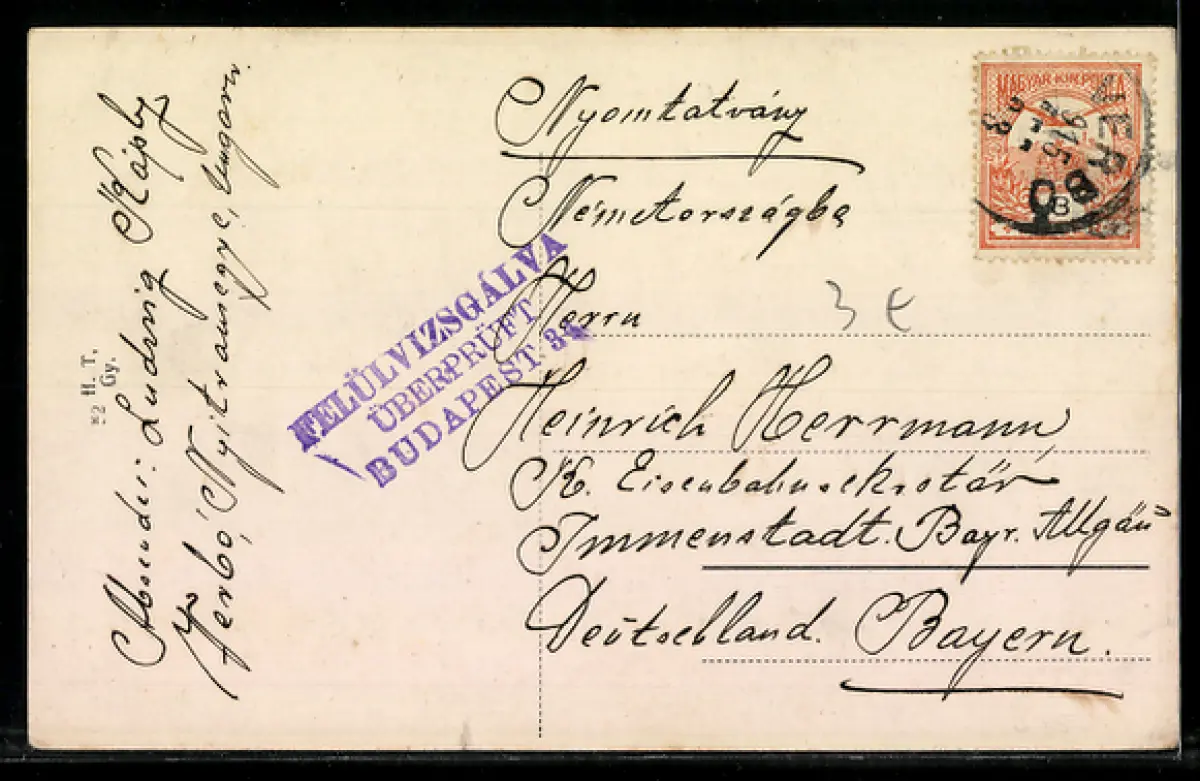 Nyomtatvány
Németországba
Herrn
Heinrich Herrmann,
K. Eisenbahnsekretär
Immenstadt. Bayr. Allgäu
Deutschland. Bayern.
Absender: Ludwig Káply
Verbó, Nyitramegye, Ungarn.
FELÜLVIZSGÁLVA
ÜBERPRÜFT
BUDAPEST 3
MAGYAR KIR. POSTA
VERBÓ
915
H. T.
Gy.
3 €